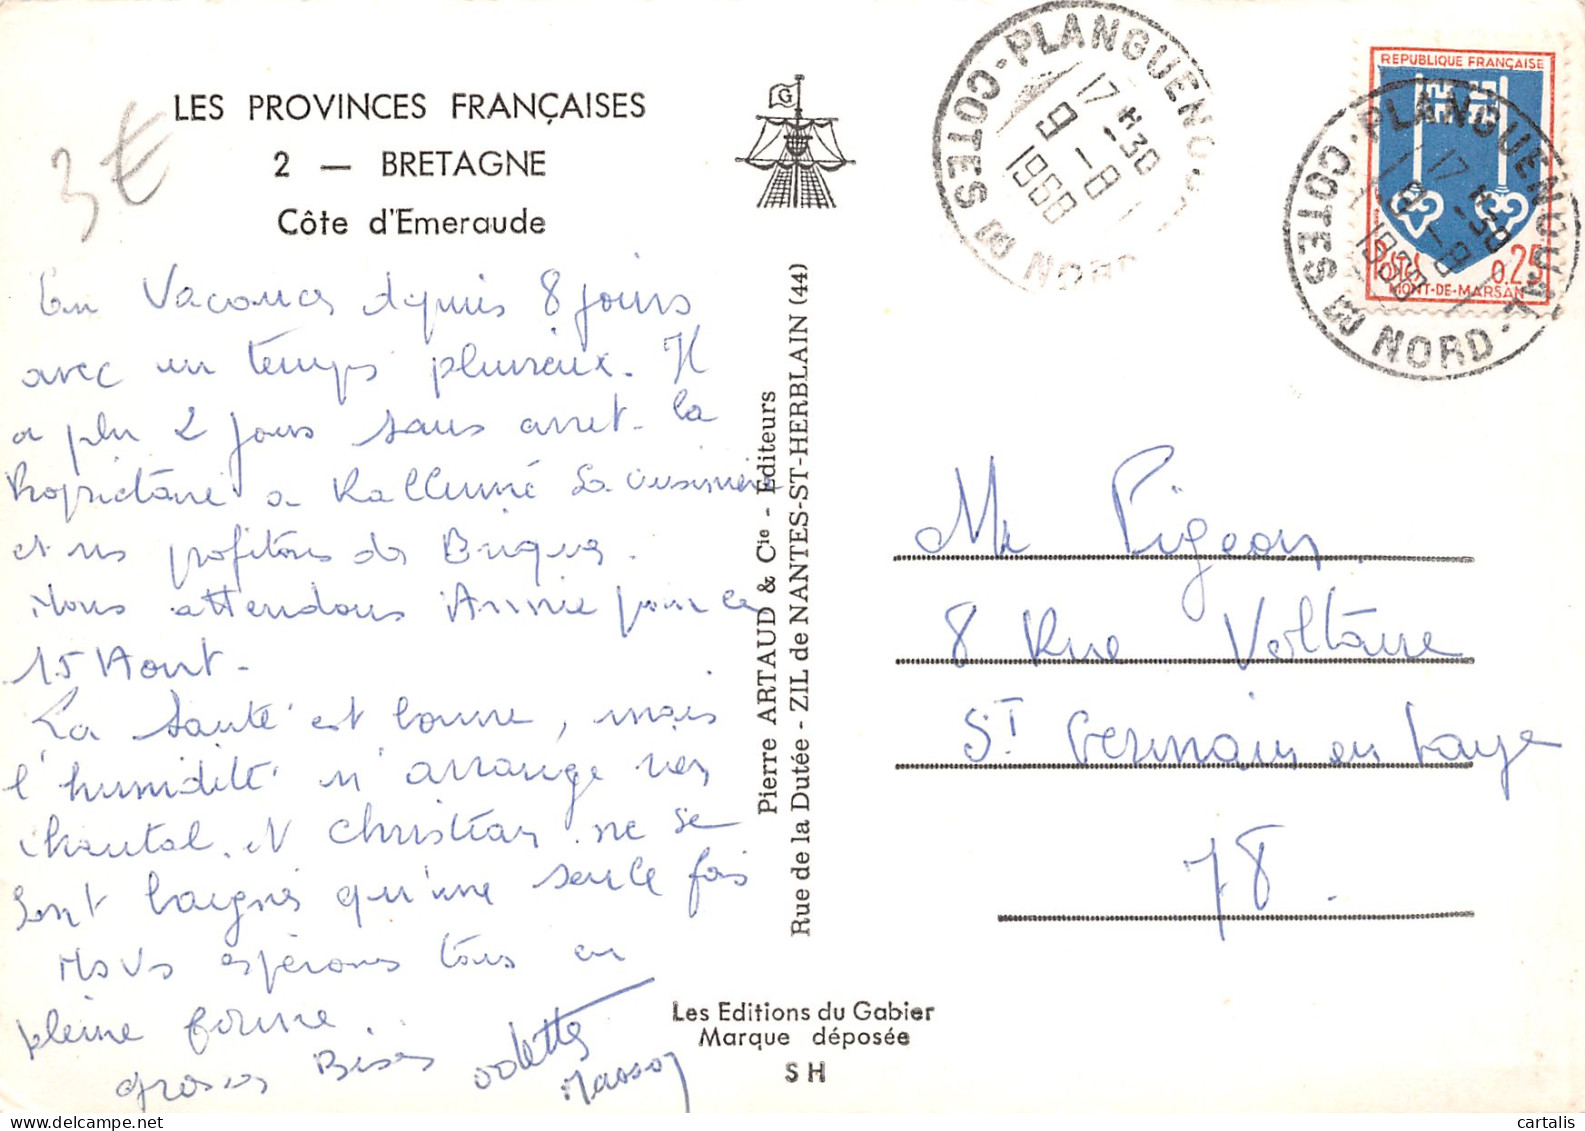 3€
LES PROVINCES FRANÇAISES
2 — BRETAGNE
Côte d'Emeraude
G
En Vacances depuis 8 jours
avec un temps pluvieux. Il
a plu 2 jours sans arret. la
Propriétaire a Rallumé sa cuisinière
et ns profitons des Briques.
Nous attendons Annie pour le
15 Aout.
La Santé est bonne, mais
l'humidité n'arrange rien
Chantal. et Christian. ne se
Sont baignés qu'une seule fois
Nous espérons tous en
pleine forme.
grosses Bises Odette
Masson
Pierre ARTAUD & Cie - Editeurs
Rue de la Dutée - ZIL de NANTES-ST-HERBLAIN (44)
Les Editions du Gabier
Marque déposée
SH
PLANGUENOUAL
COTES DU NORD
17 H 30
9 - 8
1968
REPUBLIQUE FRANÇAISE
POSTES 0.25
MONT-DE-MARSAN
PLANGUENOUAL
COTES DU NORD
17 H 30
9 - 8
1968
Mr Pigeon
8 Rue Voltaire
St Germain en Laye
78.
cartalis
delcampe.net